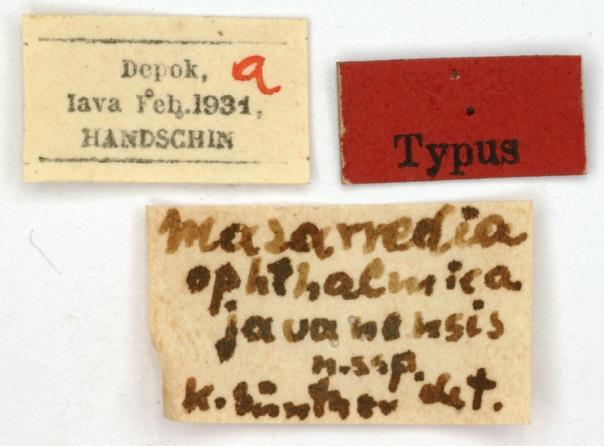 Depok, a
Iava Feb.1931,
HANDSCHIN
Typus
Mazarredia
ophthalmica
javanensis
n.ssp.
K. Günther det.